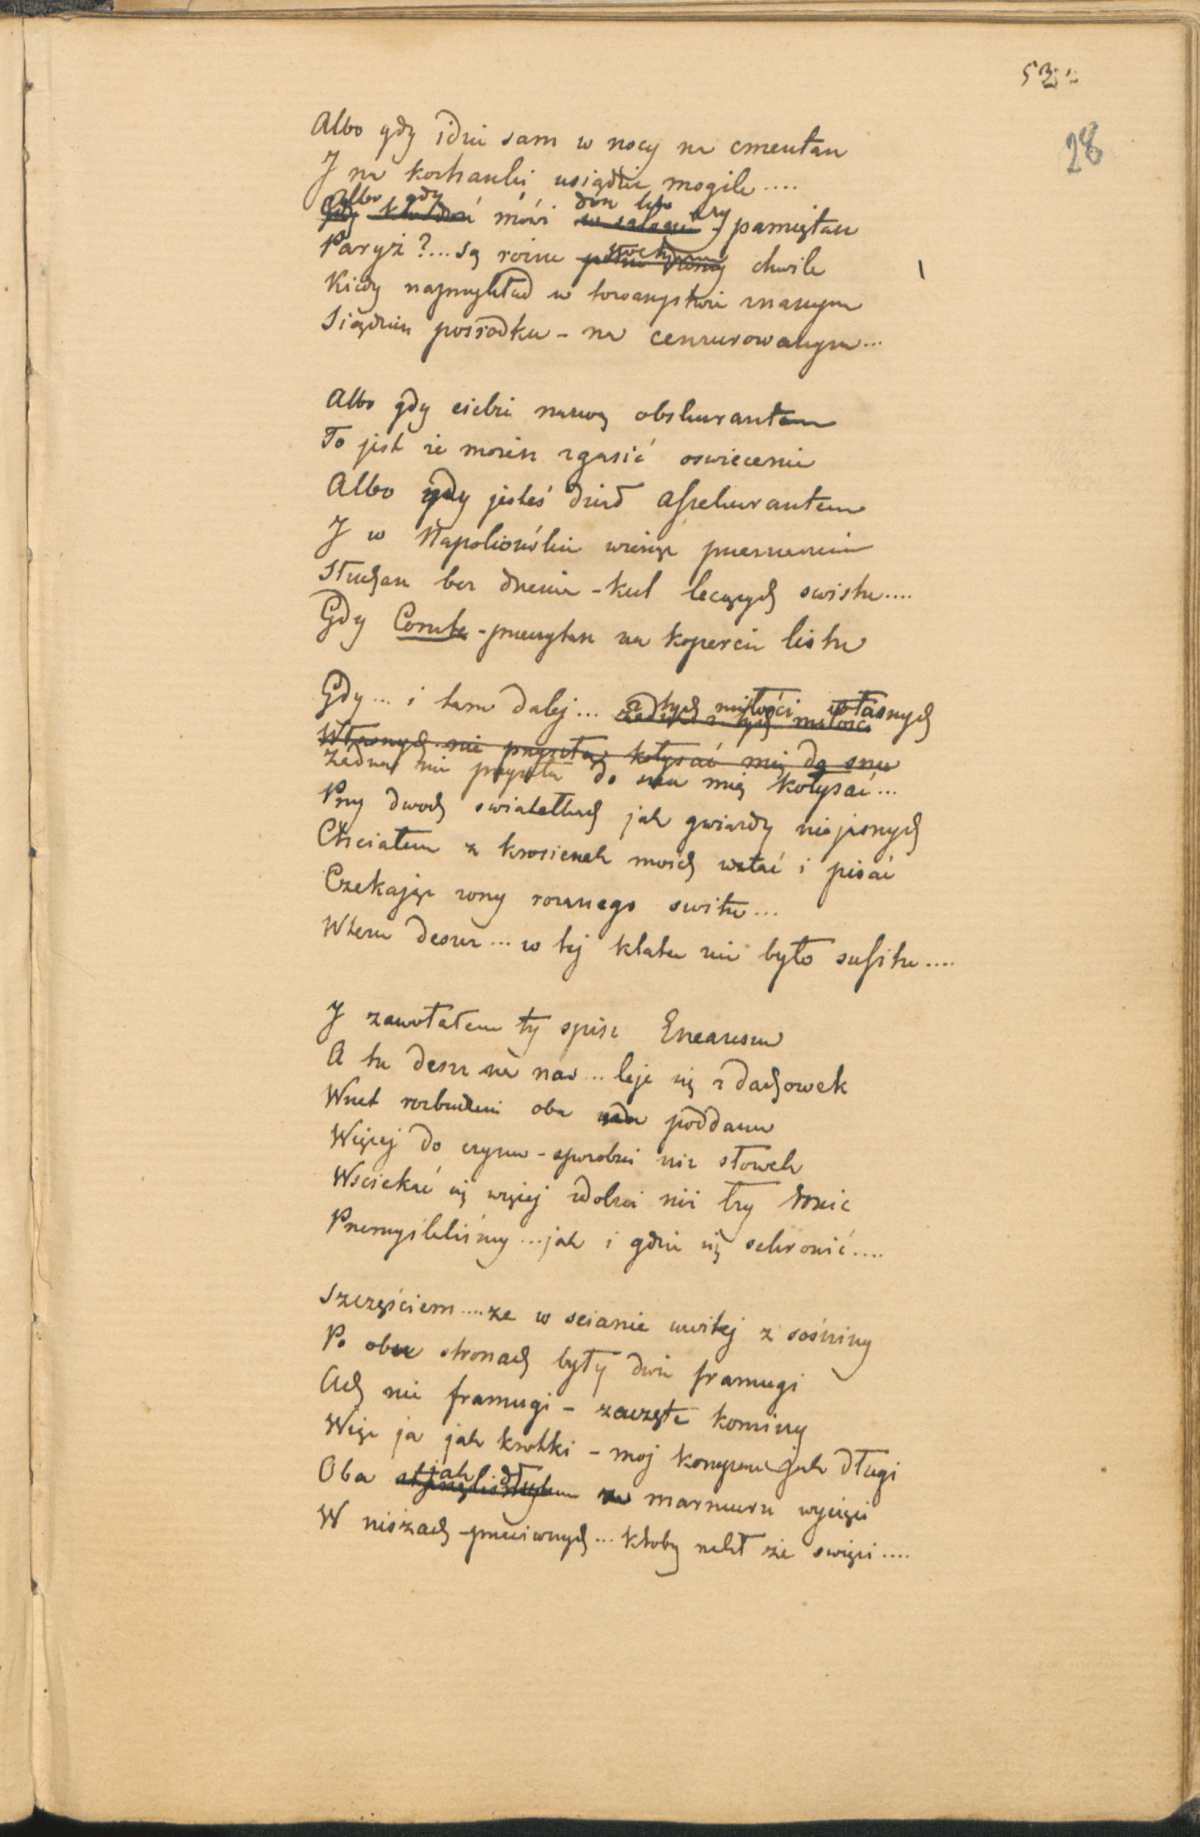 53
28
Albo gdy idzie sam w nocy na cmentarz
I na kochanki usiądzie mogile....
Albo gdy mówi czy pamiętasz
Paryż?... Są rożne chwile
Kiedy naprzykład w towarzystwie znanym
Siądziesz pośrodku - na cenzurowanym...
Albo gdy ciebie nazwą obskurantem
To jest że możesz zgasić oswiecenie
Albo gdy jesteś dziad assekurantem
I w Napolionówkie wziąść
Słuchasz bez drżenia - kul lecących swistu....
Gdy Comte - przeczytasz na kopercie listu
Gdy... i tam dalej... z tych miłości własnych
Żadna nie przyszła do snu mię kołysać...
Przy dwoch swiatełkach jak gwiazdy niejasnych
Chciałem z krosienek moich wstać i pisać
Czekając rożanego switu...
Wtem deszcz... w tej klatce nie było sufitu....
I zawołałem ty spisz Enearesu
A tu deszcz na nas... leje się z dachowek
Wnet rozbudzeni oba poddasza
Więcej do czynu - sposobni niz słowek
Wsciekać się więcej zdolni niż łzy ronić
Przemyśleliśmy... jak i gdzie się schronić....
Szczęściem.... ze w scianie uwitej z sośniny
Po obu stronach były dwie framugi
Ach nie framugi - zaczęte kominy
Więc ja jak krotki - moj kompan jak długi
Oba jak z marmuru wycięci
W niszach - przeciwnych... ktoby rzekł że swięci....